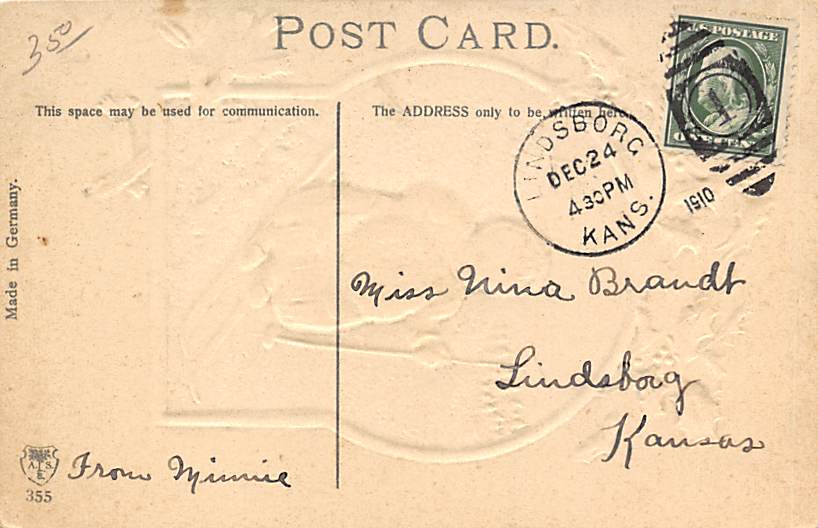 350
POST CARD.
U.S. POSTAGE
ONE CENT
This space may be used for communication.
The ADDRESS only to be written here.
LINDSBORG
DEC 24
4 30 PM
KANS.
1910
1
Made in Germany.
Miss Nina Brandt
Lindsborg
Kansas
From Minnie
A. S.
355